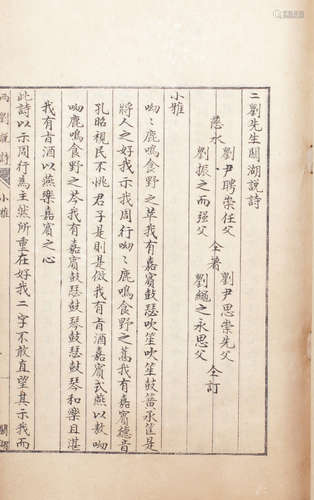 二劉先生關湖說詩
慈水 劉尹聘崇任父 劉尹思崇先父
劉振之而强父 仝著 劉繩之永思父 仝訂
小雅
呦〻鹿鳴食野之苹我有嘉賓鼓瑟吹笙吹笙鼓簧承筐是
將人之好我示我周行呦〻鹿鳴食野之蒿我有嘉賓德音
孔昭視民不恌君子是則是傚我有旨酒嘉賓式燕以敖呦
呦鹿鳴食野之芩我有嘉賓鼓瑟鼓琴鼓瑟鼓琴和樂且湛
我有旨酒以燕樂嘉賓之心
此詩以示周行為主然所重在好我二字不敢直望其示我而
兩劉說詩 小雅